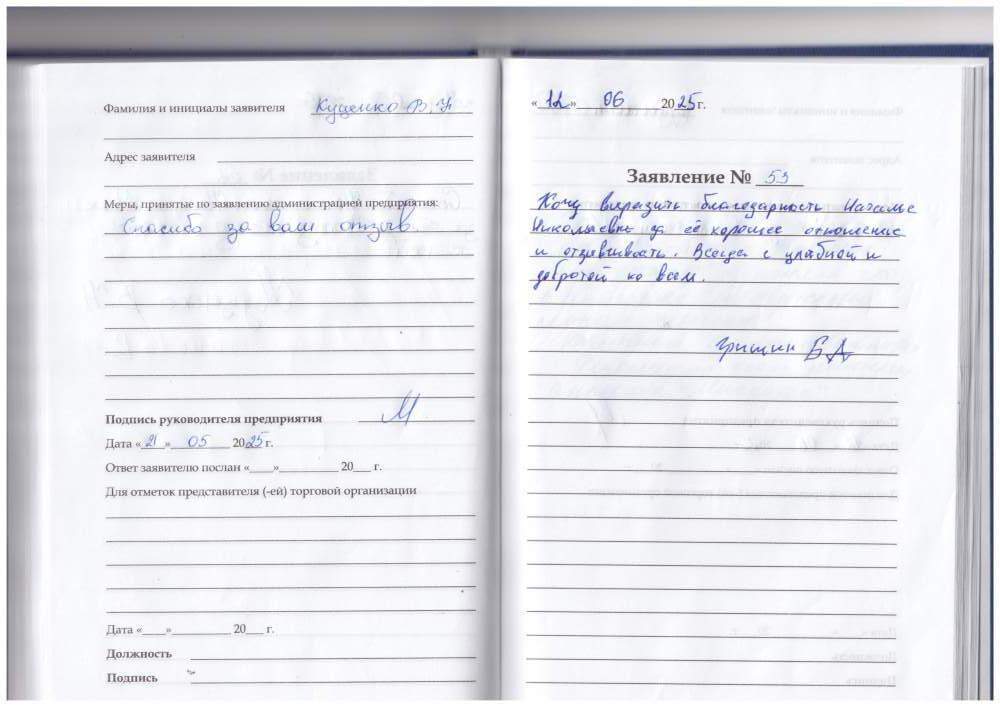 Фамилия и инициалы заявителя Куценко В.И
Адрес заявителя
Меры, принятые по заявлению администрацией предприятия:
Спасибо за ваш отзыв
Подпись руководителя предприятия
Дата «21» 05 2025 г.
Ответ заявителю послан «___» ________ 20___ г.
Для отметок представителя (-ей) торговой организации
Дата «___» ________ 20___ г.
Должность
Подпись
«12» 06 2025 г.
Заявление № 53
Хочу выразить благодарность Наталье
Николаевне за её хорошее отношение
и отзывчивость. Всегда с улыбкой и
добротой ко всем.
Гришин Б А